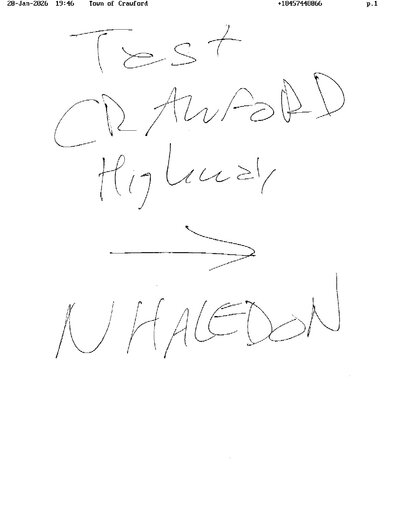 28-Jan-2026 19:46 Town of Crawford +18457448866 p.1
Test
CRAWFORD
Highway
N HALEDON